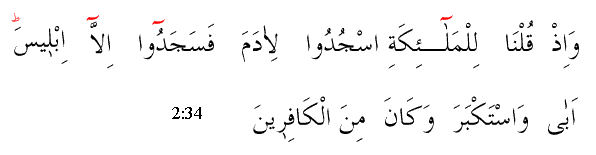 وَاِذْ قُلْنَا لِلْمَلٰٓئِكَةِ اسْجُدُوا لِاٰدَمَ فَسَجَدُٓوا اِلَّٓا اِبْل۪يسَۜ
اَبٰى وَاسْتَكْبَرَ وَكَانَ مِنَ الْكَافِر۪ينَ 2:34